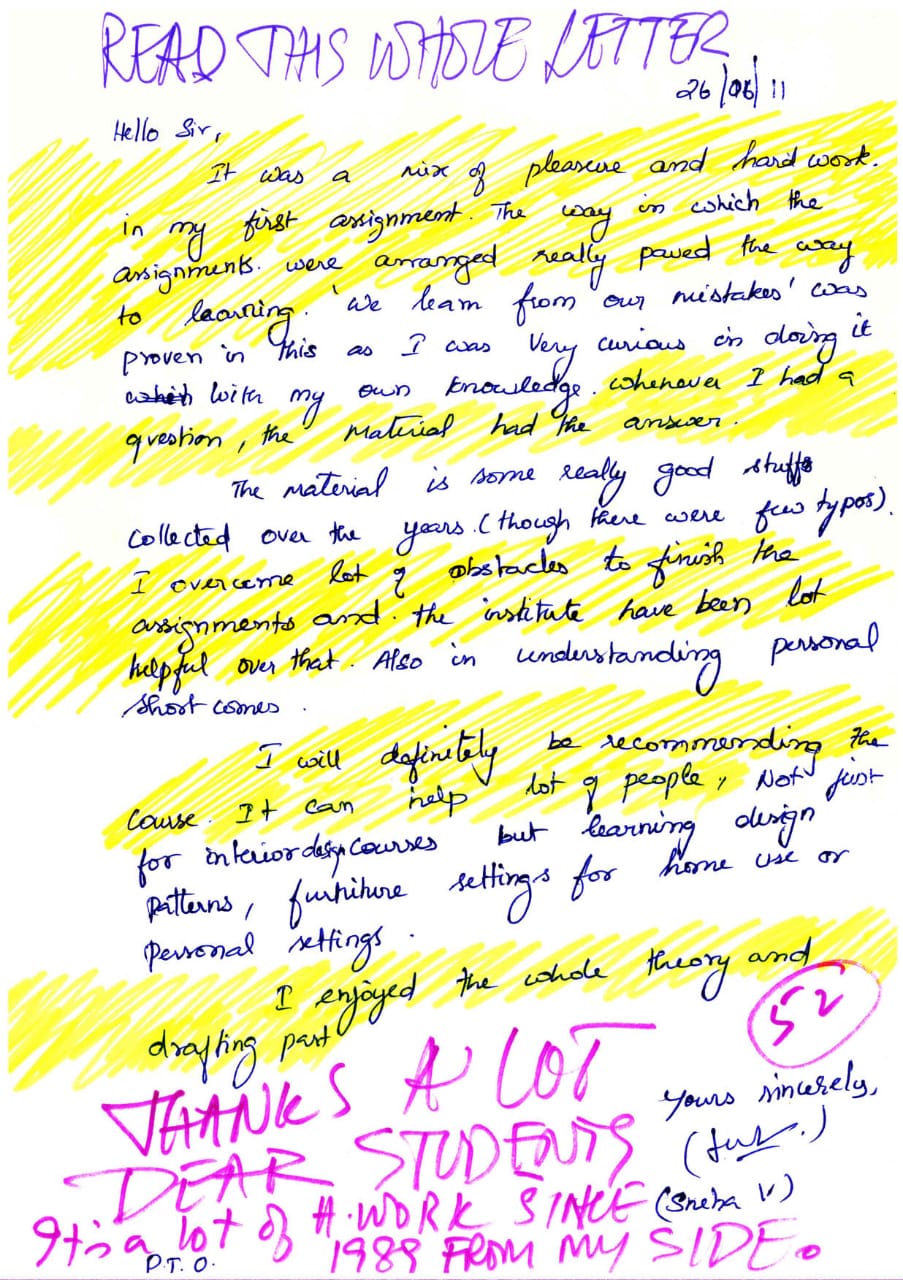 READ THIS WHOLE LETTER
26/06/11
Hello Sir,
It was a mix of pleasure and hard work.
in my first assignment. The way in which the
assignments. were arranged really paved the way
to learning. 'We learn from our mistakes' was
proven in this as I was very curious in doing it
which with my own knowledge. whenever I had a
question, the material had the answer.
The material is some really good stuffs
collected over the years. (though there were few typos).
I overcame lot of obstacles to finish the
assignments and. the institute have been lot
helpful over that. Also in understanding personal
short comes.
I will definitely be recommending the
course. It can help lot of people, Not just
for interior design courses but learning design
patterns, furniture settings for home use or
personal settings.
I enjoyed the whole theory and
drafting part
52
THANKS A LOT
DEAR STUDENTS
Yours sincerely,
(Sneha V)
It is a lot of H.WORK SINCE
1989 FROM MY SIDE.
P.T.O.